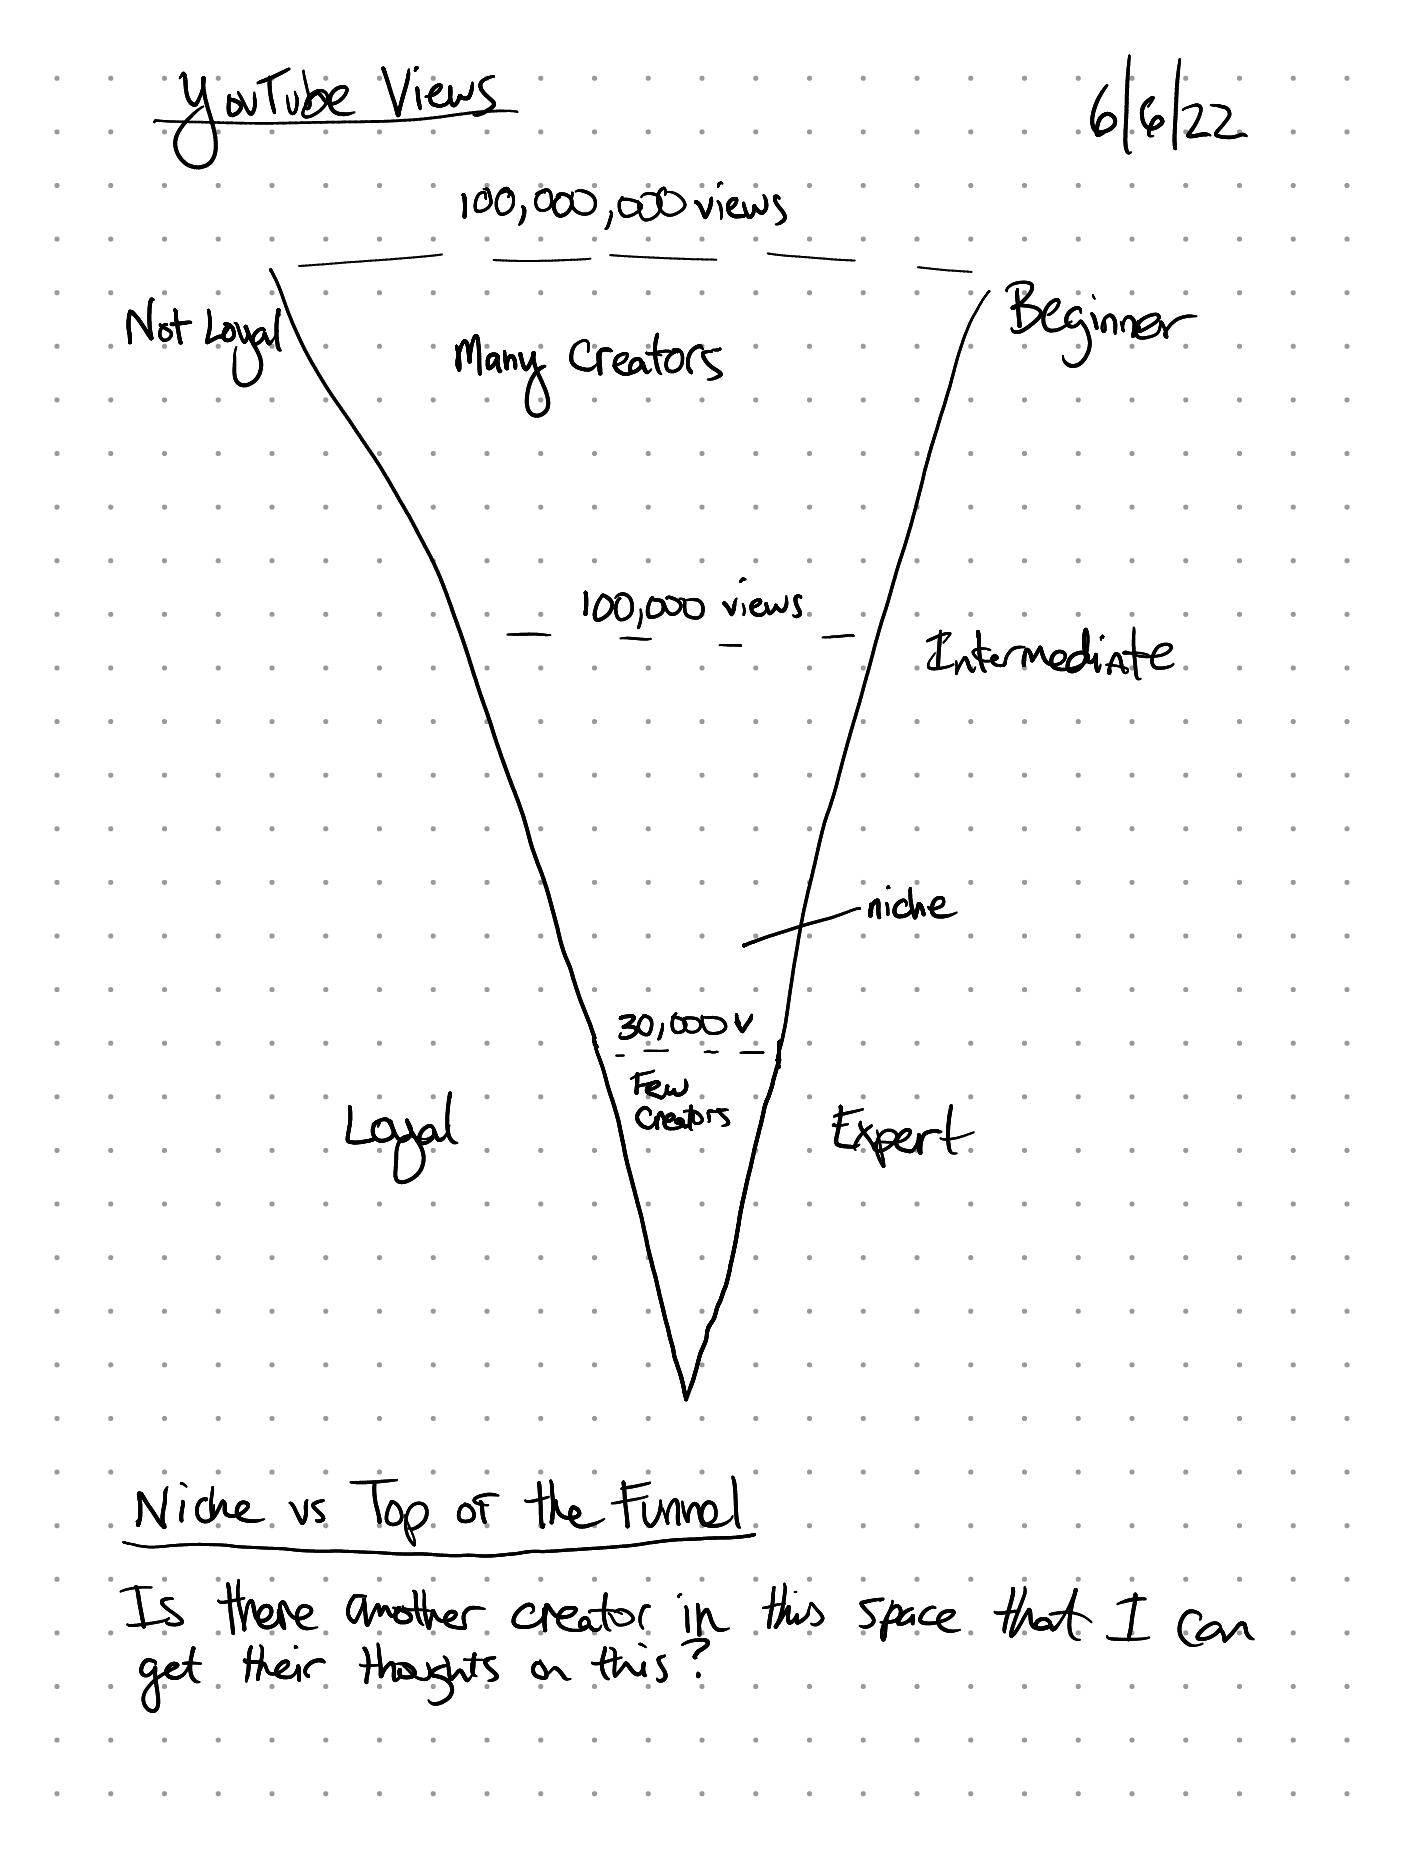 YouTube Views
6/6/22
100,000,000 views
Not Loyal
Beginner
Many Creators
100,000 views
Intermediate
niche
30,000 v
Few
Creators
Loyal
Expert
Niche vs Top of the Funnel
Is there another creator in this space that I can
get their thoughts on this?